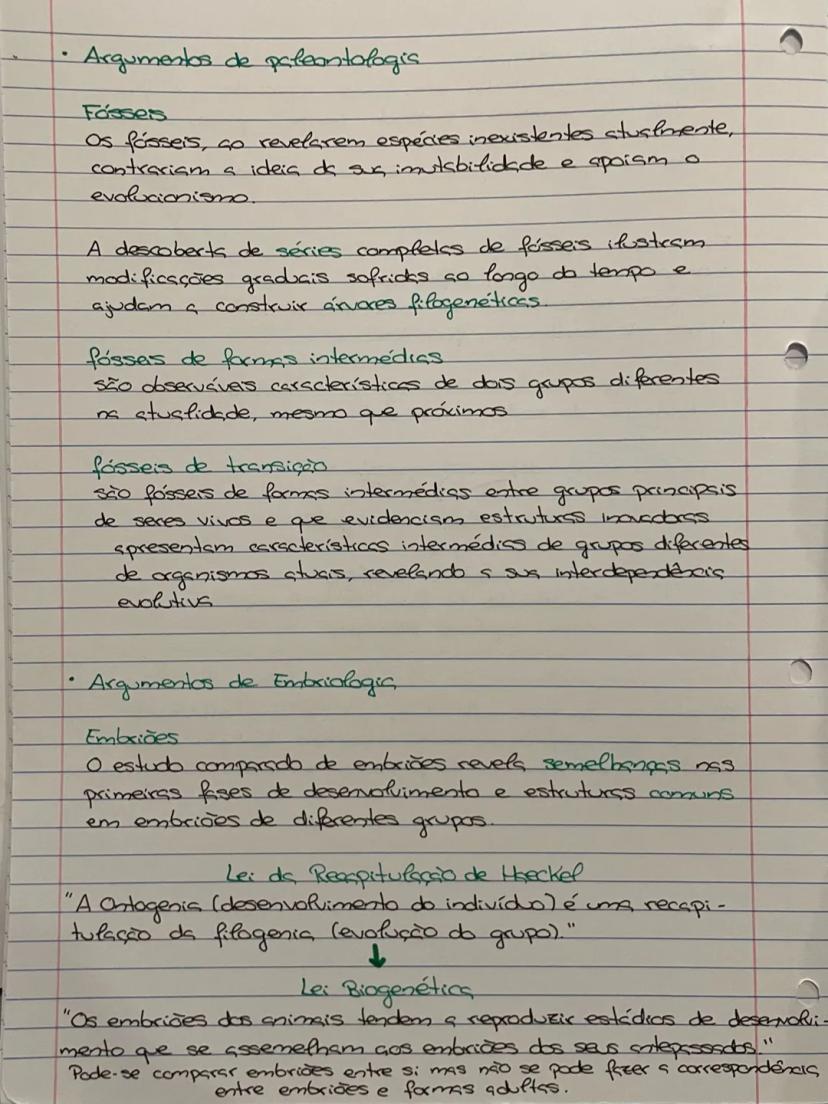 • Argumentos de paleontologia
Fósseis
Os fósseis, ao revelarem espécies inexistentes atualmente,
contrariam a ideia da sua imutabilidade e apoiam o
evolucionismo.
A descoberta de séries completas de fósseis ilustram
modificações graduais sofridas ao longo do tempo e
ajudam a construir árvores filogenéticas.
fósseis de formas intermédias
são observáveis características de dois grupos diferentes
na atualidade, mesmo que próximos
fósseis de transição
são fósseis de formas intermédias entre grupos principais
de seres vivos e que evidenciam estruturas inovadoras
apresentam características intermédias de grupos diferentes
de organismos atuais, revelando a sua interdependência
evolutiva
• Argumentos de Embriologia
Embriões
O estudo comparado de embriões revela semelhanças nas
primeiras fases de desenvolvimento e estruturas comuns
em embriões de diferentes grupos.
Lei da Recapitulação de Haeckel
"A Ontogenia (desenvolvimento do indivíduo) é uma recapi-
tulação da filogenia (evolução do grupo)."
↓
Lei Biogenética
"Os embriões dos animais tendem a reproduzir estádios de desenvolvi-
mento que se assemelham aos embriões dos seus antepassados."
Pode-se comparar embriões entre si mas não se pode fazer a correspondência
entre embriões e formas adultas.